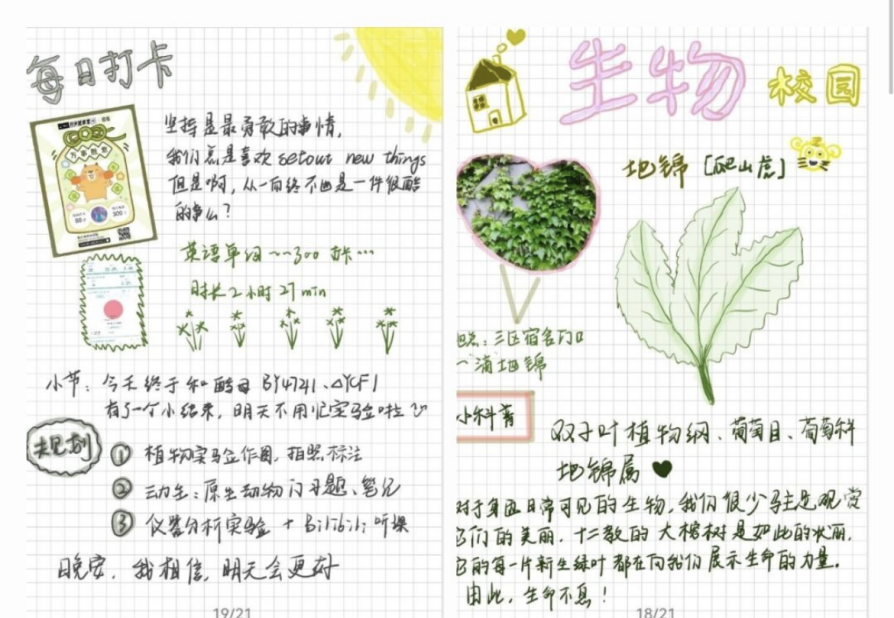 每日打卡
坚持是最勇敢的事情,
我们总是喜欢 setout new things
但是啊,从一而终不也是一件很酷
的事么?
英语单词~~300 打卡…
时长2小时27min
小节:今天终于和酵母 BY4741、ΔYCF1
有了一个小结果,明天不用忙实验啦
规划
① 植物实验作图,拍照标注
② 动生:原生动物门习题、笔记
③ 仪器分析实验 + Bilibili听课
晚安,我相信,明天会更好
19/21
生物 校园
地锦 [爬山虎]
三区宿舍门口
一滴地锦
小科普
双子叶植物纲、葡萄目、葡萄科
地锦属
对于身边日常可见的生物,我们很少驻足观赏
它们的美丽,十二教的大榕树是如此的壮丽,
它的每一片新生绿叶都在向我们展示生命的力量。
由此,生命不息!
18/21